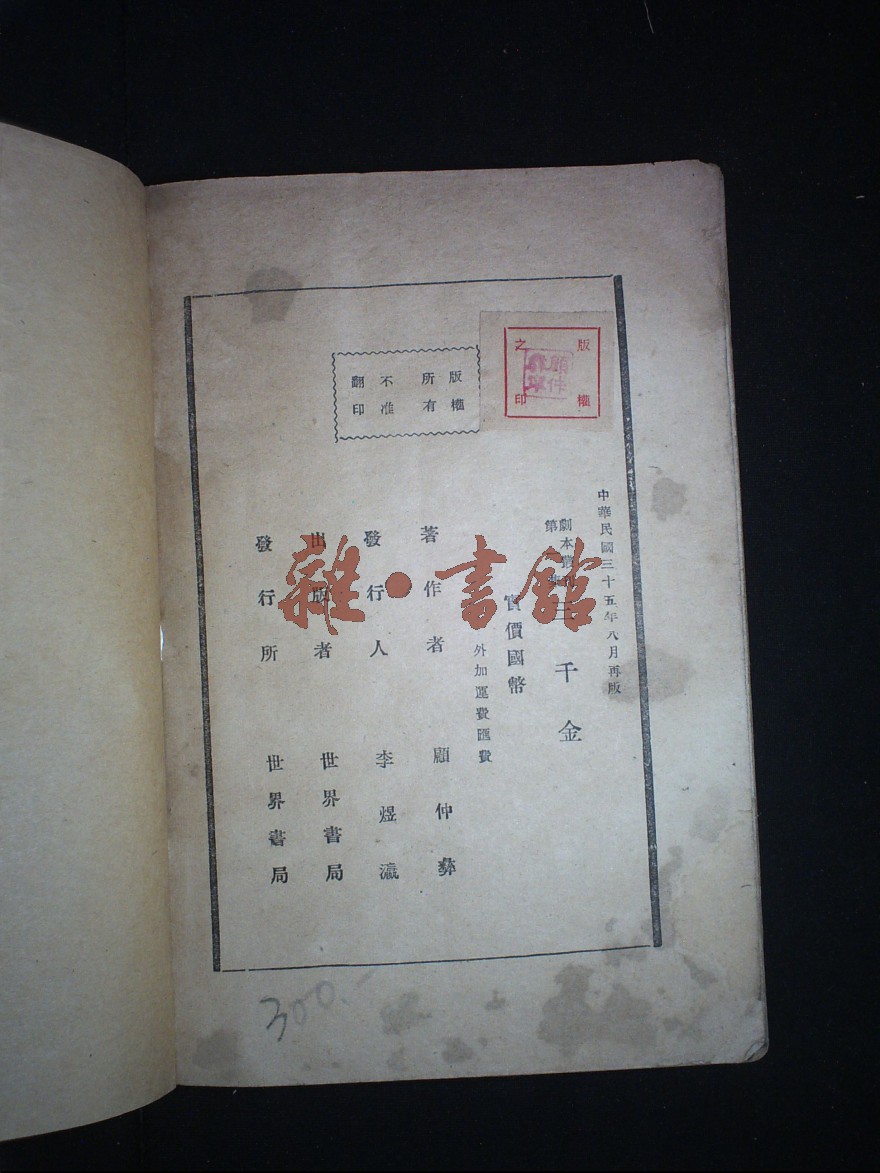 版權
之印
顧仲
版權
所有
不准
翻印
中華民國三十五年八月再版
劇本叢刊
第
三千金
實價國幣
外加運費匯費
著作者 顧仲彝
發行人 李煜瀛
出版者 世界書局
發行所 世界書局
雜·書館
300.-